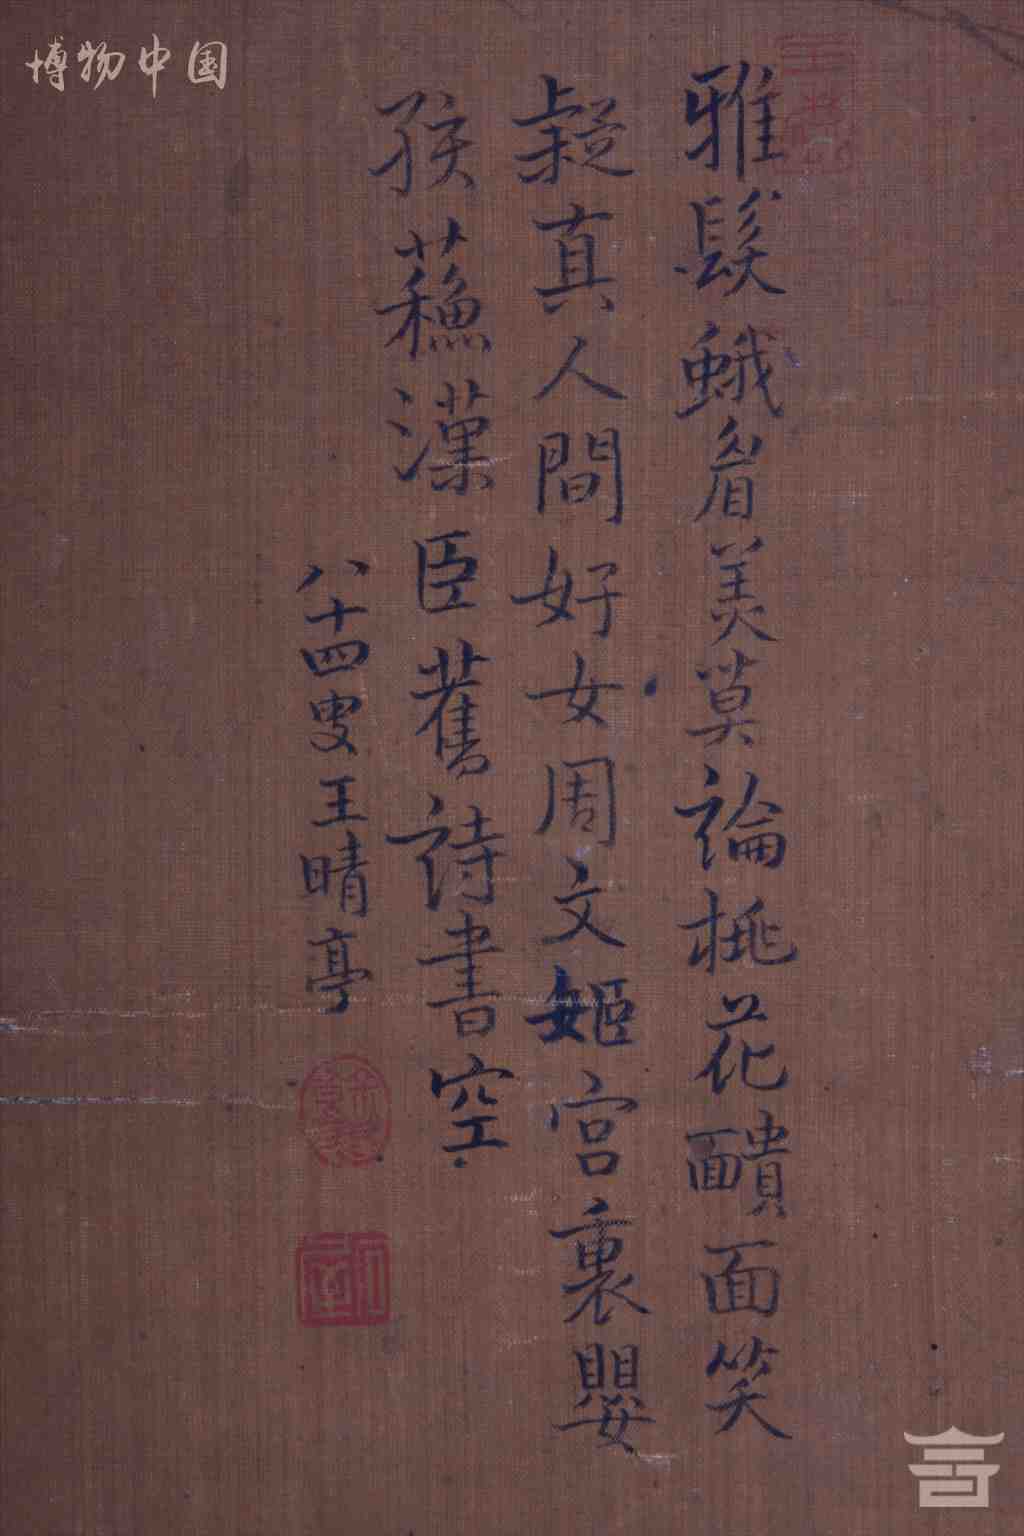 博物中国
雅髮蛾眉美莫論桃花靧面笑
疑真人間好女周文姬宮裏嬰
孩蘓漢臣舊詩書空
八十四叟王晴亭